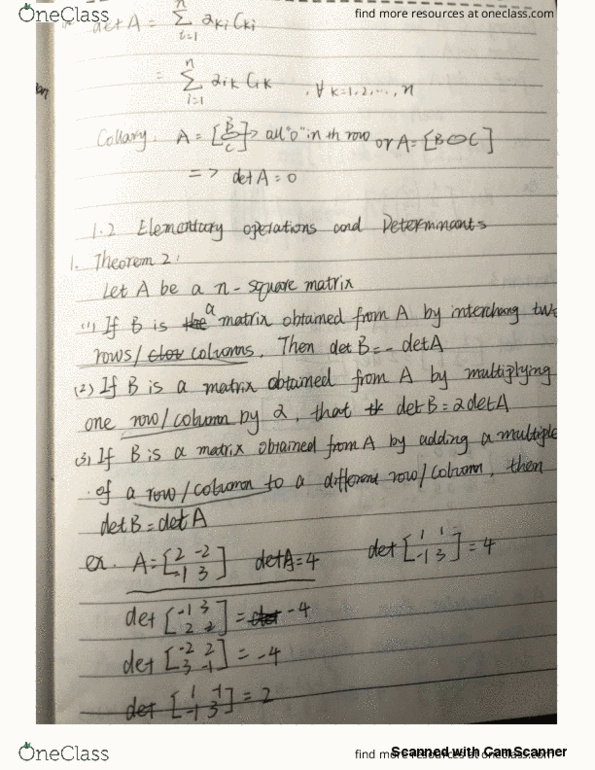 OneClass
find more resources at oneclass.com
det A = n∑i=1 aki Cki
= n∑i=1 aik Cik , ∀ k=1,2,...,n
Collary. A = [B/0/C] → all "0" in th row or A = [B 0 C]
=> det A = 0
1.2 Elementary operations and Determinants
1. Theorem 2:
Let A be a n-square matrix
(1) If B is the a matrix obtained from A by interchang two
rows/colou columns. Then det B = - det A
(2) If B is a matrix obtained from A by multiplying
one row/column by 2, that det B = 2 det A
(3) If B is a matrix obtained from A by adding a multiple
of a row/column to a different row/column, then
det B = det A
ex. A = [2 -2 / -1 3] det A = 4 det [1 1 / -1 3] = 4
det [-1 3 / 2 2] = det -4
det [-2 2 / 3 -1] = -4
det [1 -1 / -1 3] = 2
OneClass
find more resources at oneclass.com
Scanned with CamScanner